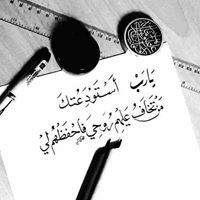 يَارَبْ أَسْتَوْدَعْتكَ
مَنْ تَخَافُ عَلَيْهِمْ رُوحِيْ فَاحْفَظْهُمْ لِيْ